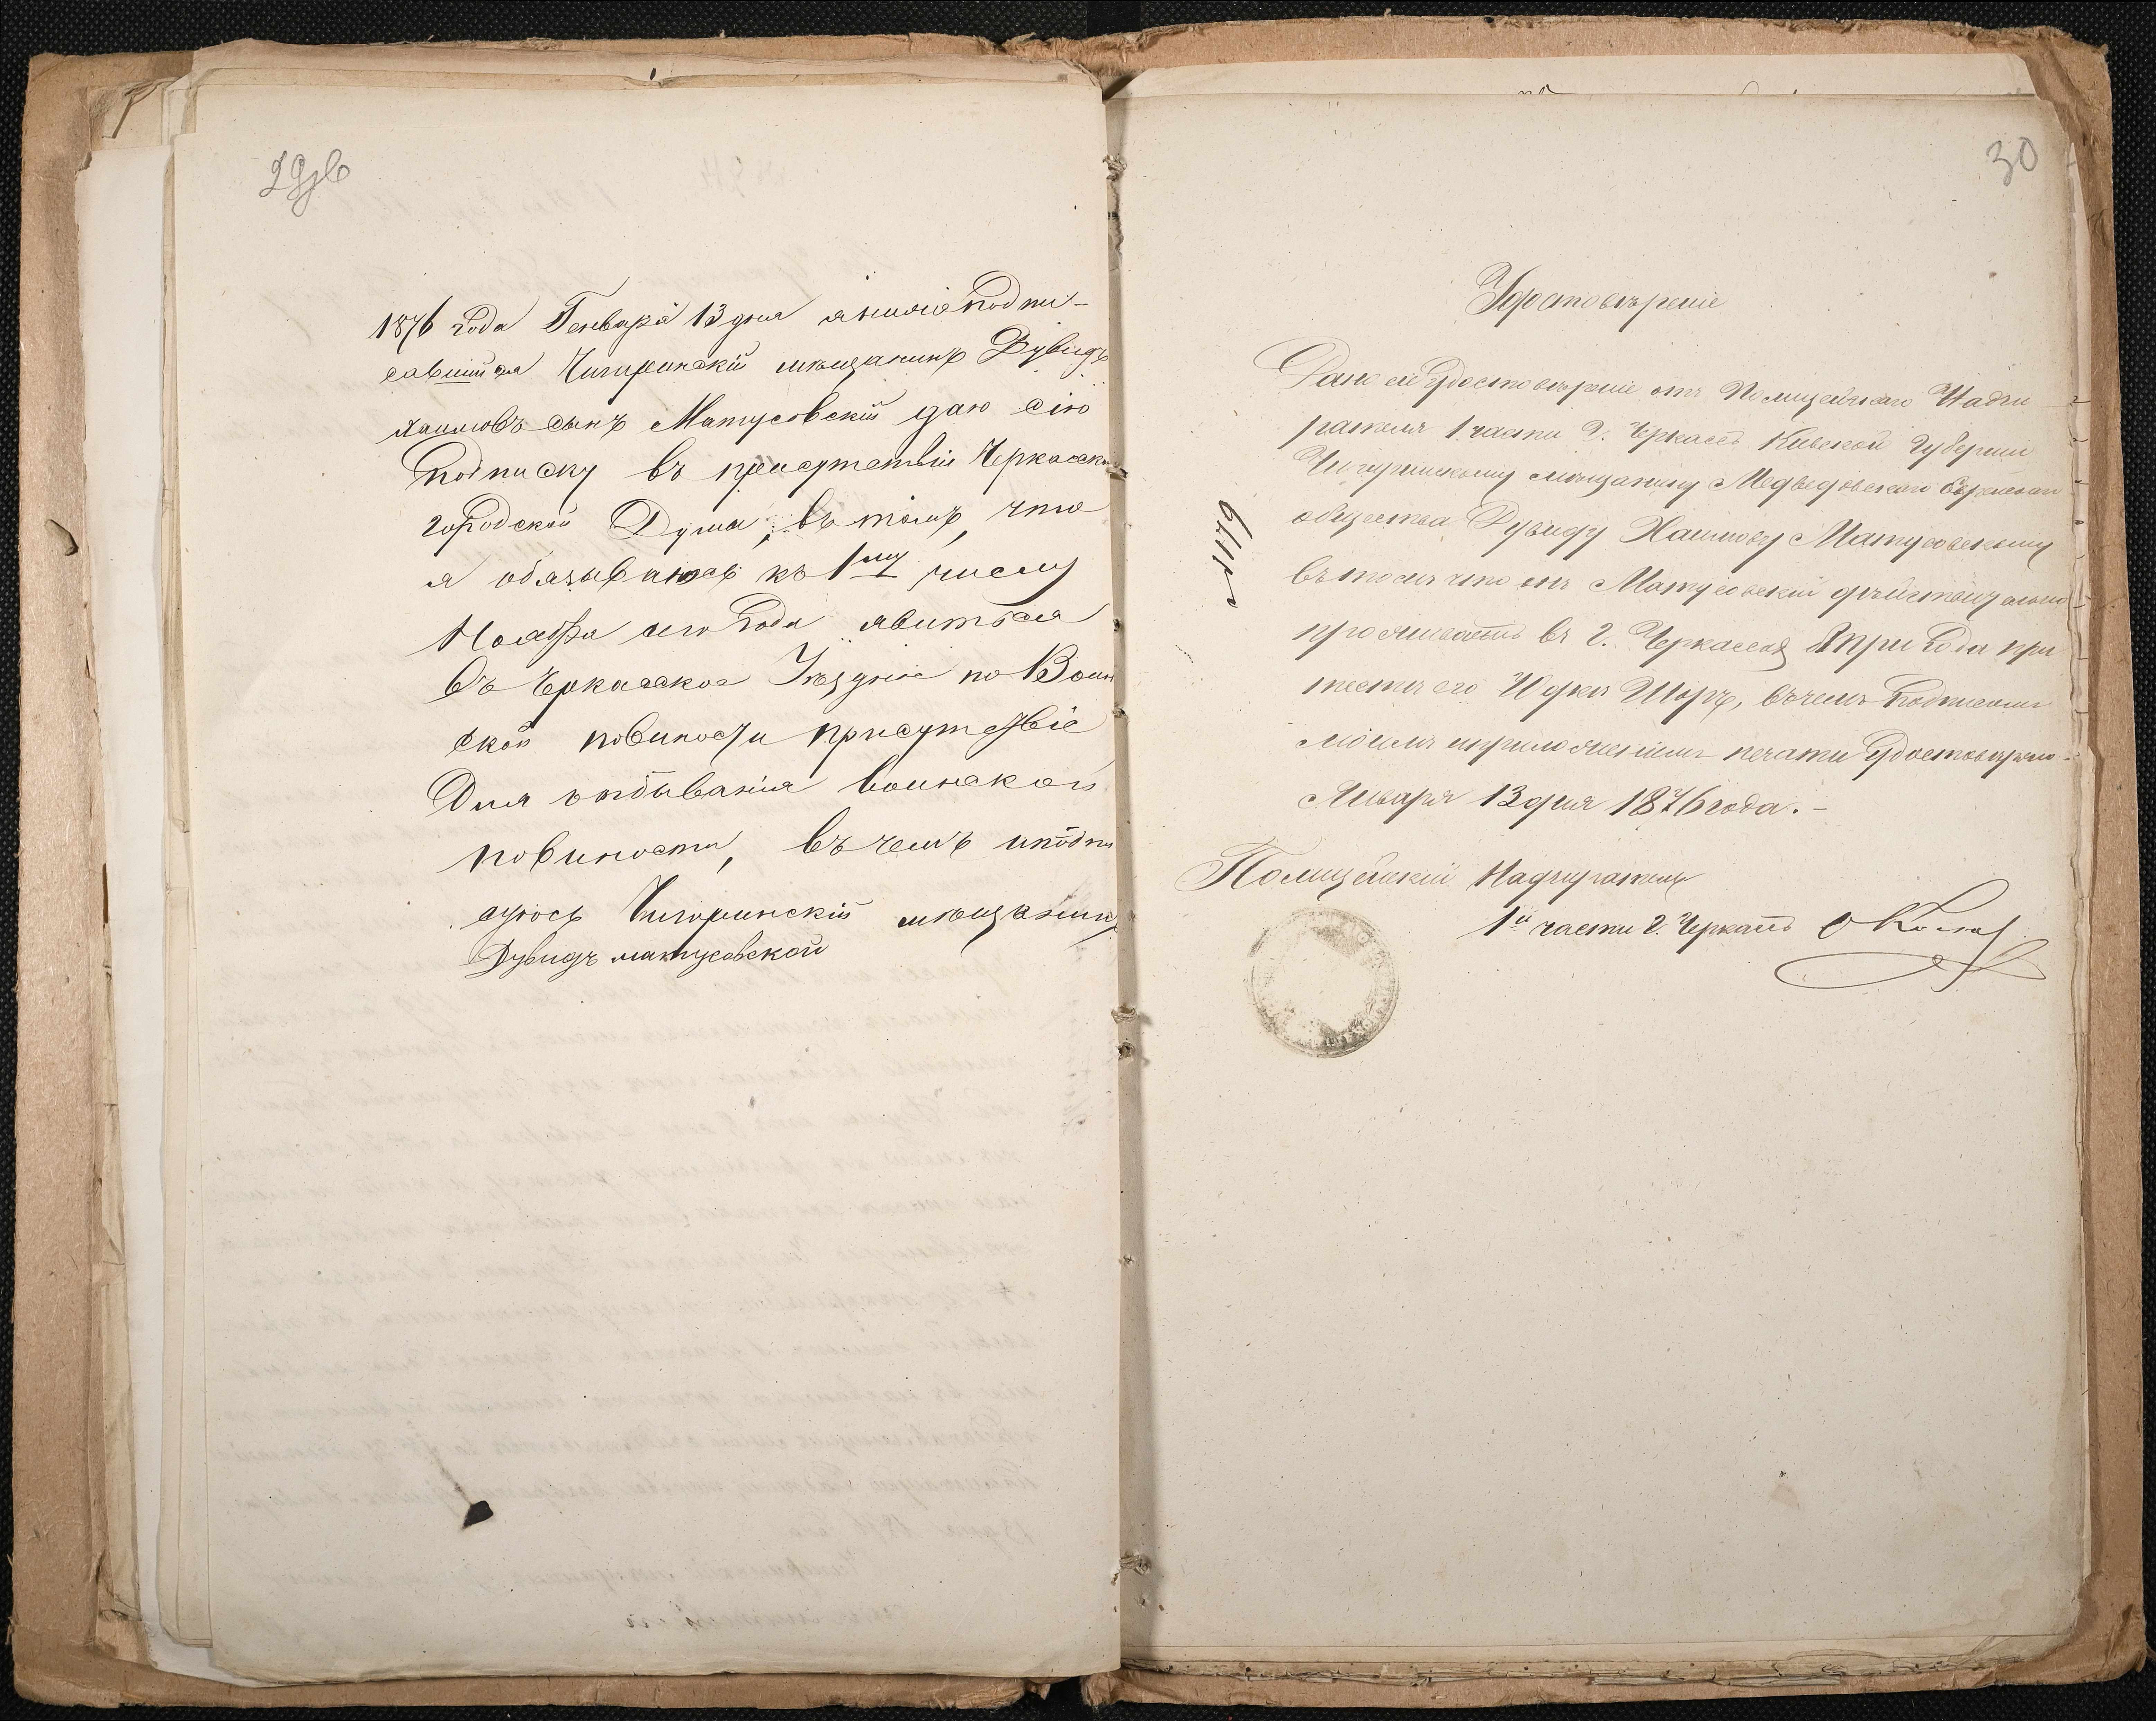 29зв
1876 Года Генваря 13 дня я нижеподпи-
савшийся Чигиринскій мещанинъ Дувидъ
Хаимовъ сынъ Матусовскій даю сію
Подписку въ присутствіи Черкасск
городской Думы, въ томъ, что
я обязываюсь къ 1му числу
Ноября сего Года явиться
Въ Черкаское Уѣздное по Воин
ской повиности присутствіе
Для отбыванія воинской
повиности, въ чемъ и подпи
суюсь Чигиринскій мѣщанинъ
Дувидъ матусовской
30
Удостовѣреніе
Дано сіе Удостовѣреніе отъ Полицейскаго Надзи
рателя 1 части Г. Черкасъ Кіевской Губерніи
Чигиринскому мѣщанину Медведовскаго Еврейскаго
общества Дувиду Хаимову Матусовскому
въ томъ что онъ Матусовскій действительно
проживаетъ въ Г. Черкассахъ три Года при
тестѣ его Шоръ, въ чемъ Подписомъ
моимъ и приложеніемъ печати Удостовѣряю.
Января 13 дня 1876 года.
№ 119
Полицейскій Надзиратель
1й части Г. Черкасъ